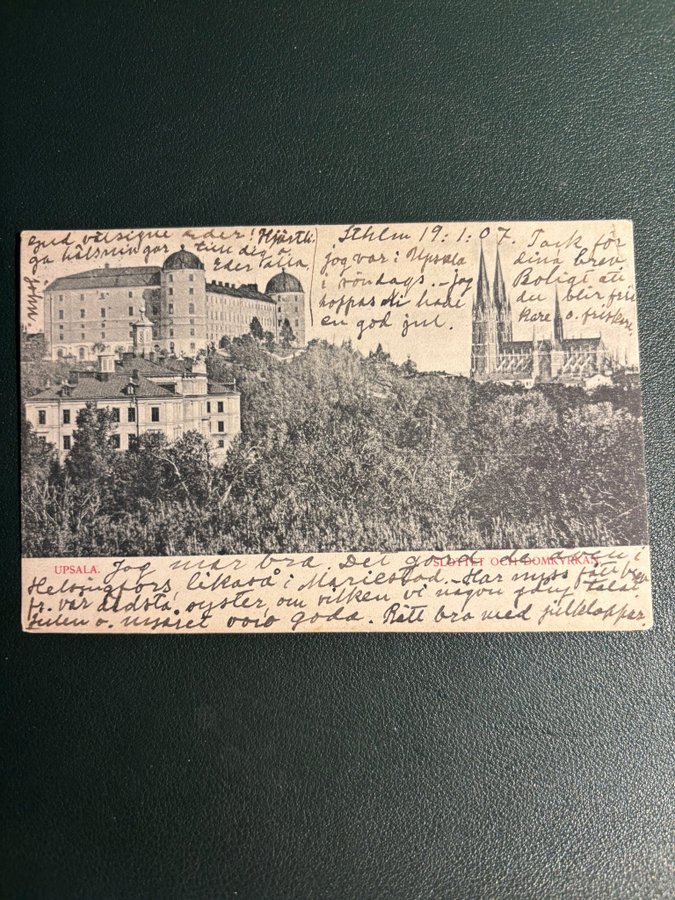 Sthlm 19.1.07.
jag var i Upsala
i söndags. Jag
hoppas Ni hade
en god jul.
Tack för
dina bref
Roligt att
du blir fris
kare o. friskare.
UPSALA. SLOTTET OCH DOMKYRKAN.
Jag mår bra Det
Helsingfors, likaså i Mariestad. Har nyss fått bref
fr. vår äldsta syster, om vilken vi någon gång talat
Julen o. nyåret voro goda. Rätt bra med julklappar.
Gud välsigne eder! Hjärtli
ga hälsningar till dig o.
Eder alla